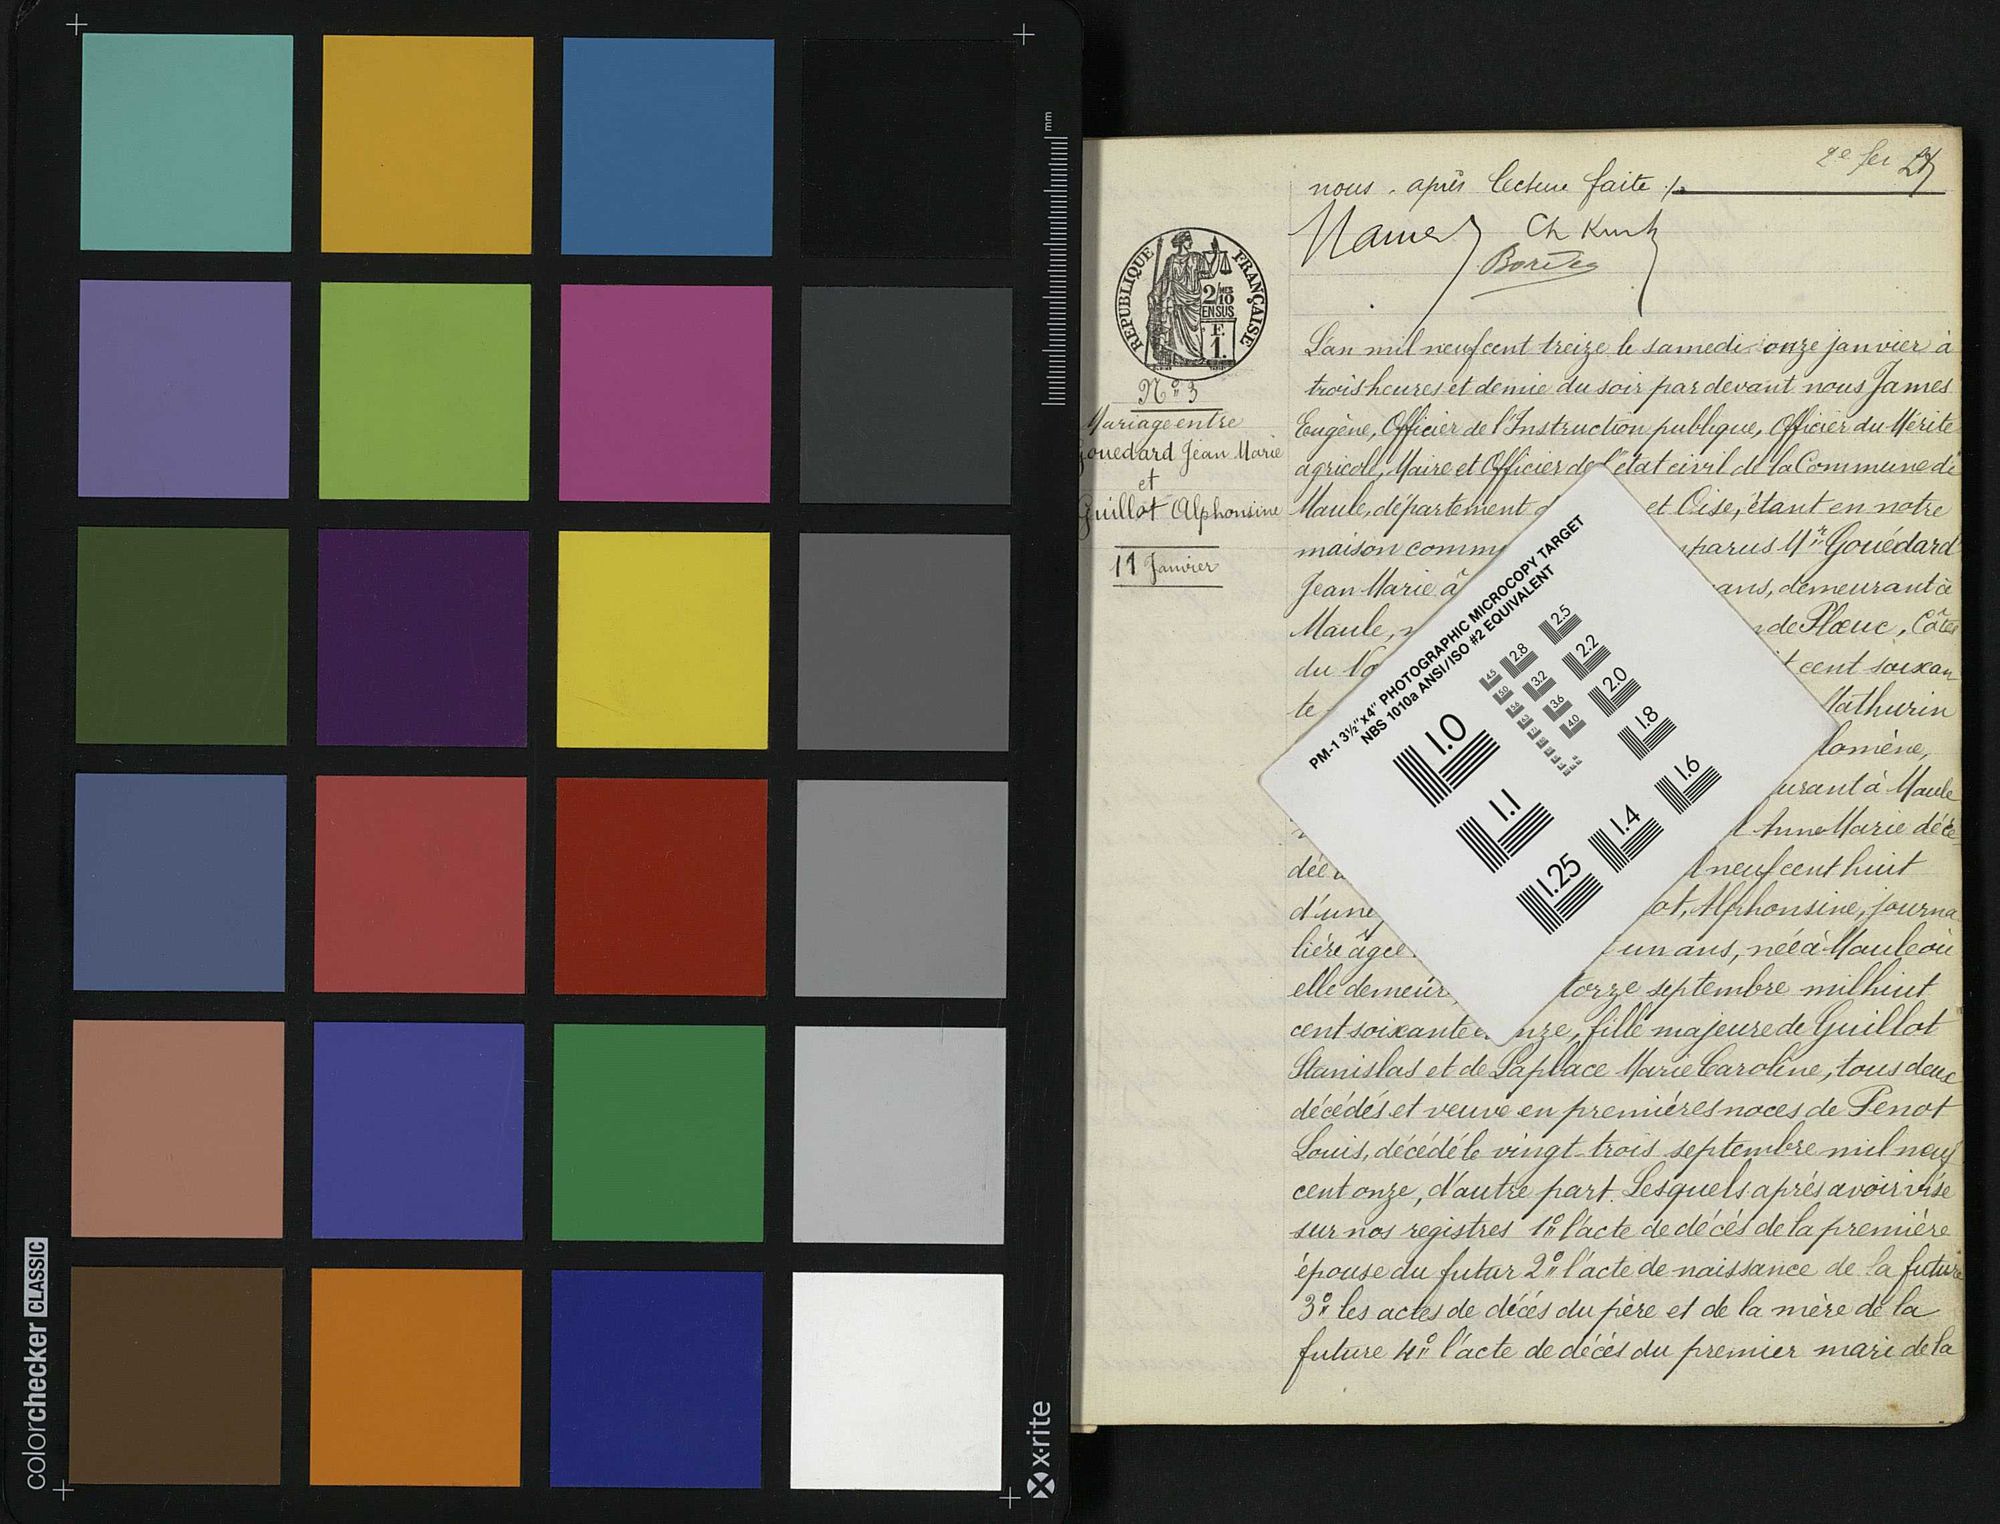 2e fer 27
nous. après lecture faite ./.
Ch Kurtz
Bordes
RÉPUBLIQUE FRANÇAISE
2/10 MES
EN SUS
F.
1.
N° 3
Mariage entre
Gouedard Jean Marie
et
Guillot Alphonsine
11 Janvier
L'an mil neuf cent treize le samedi onze janvier à
trois heures et demie du soir par devant nous James
Eugène, Officier de l'Instruction publique, Officier du Mérite
agricole, Maire et Officier de l'état civil de la Commune de
Maule, département d et Oise, étant en notre
maison commu parus Mr Gouédard
Jean Marie â ans, demeurant à
Maule, n de Plœuc, Côtes
du No t cent soixan
te Mathurin
lomène,
urant à Maule
Anne Marie décé
dée l neuf cent huit
d'une ot, Alphonsine, journa
lière âgée t un ans, née à Maule où
elle demeure torze septembre mil huit
cent soixante e nze, fille majeure de Guillot
Stanislas et de Laplace Marie Caroline, tous deux
décédés et veuve en premières noces de Penot
Louis, décédé le vingt-trois septembre mil neuf
cent onze, d'autre part. Lesquels après avoir visé
sur nos registres 1° l'acte de décès de la première
épouse du futur 2° l'acte de naissance de la future
3° les actes de décès du père et de la mère de la
future 4° l'acte de décès du premier mari de la
PM-1 3½"x4" PHOTOGRAPHIC MICROCOPY TARGET
NBS 1010a ANSI/ISO #2 EQUIVALENT
1.0
1.1
1.25
1.4
1.6
1.8
2.0
2.2
2.5
2.8
3.2
3.6
4.0
4.5
5.0
5.6
6.3
mm
colorchecker CLASSIC
x-rite